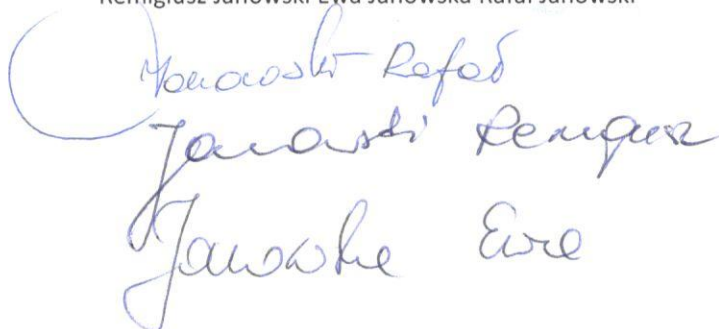 Remigiusz Janowski Ewa Janowska Rafał Janowski
Janowski Rafał
Janowski Remigiusz
Janowska Ewa